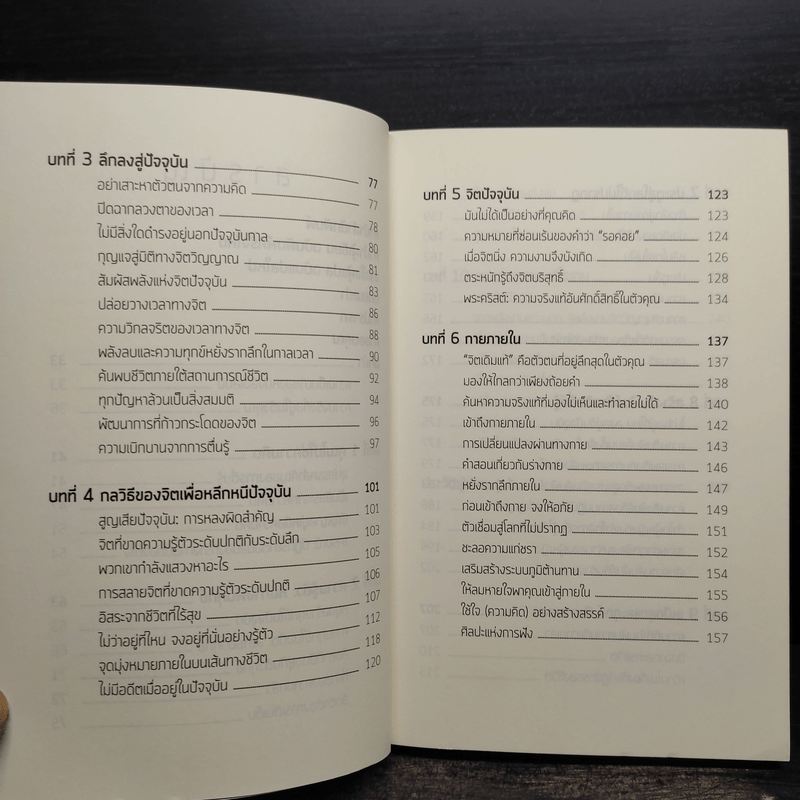 บทที่ 3 ลึกลงสู่ปัจจุบัน 77
อย่าเสาะหาตัวตนจากความคิด 77
ปิดฉากลวงตาของเวลา 78
ไม่มีสิ่งใดดำรงอยู่นอกปัจจุบันกาล 80
กุญแจสู่มิติทางจิตวิญญาณ 81
สัมผัสพลังแห่งจิตปัจจุบัน 83
ปล่อยวางเวลาทางจิต 86
ความวิกลจริตของเวลาทางจิต 88
พลังลบและความทุกข์หยั่งรากลึกในกาลเวลา 90
ค้นพบชีวิตภายใต้สถานการณ์ชีวิต 92
ทุกปัญหาล้วนเป็นสิ่งสมมติ 94
พัฒนาการที่ก้าวกระโดดของจิต 96
ความเบิกบานจากการตื่นรู้ 97
บทที่ 4 กลวิธีของจิตเพื่อหลีกหนีปัจจุบัน 101
สูญเสียปัจจุบัน: การหลงผิดสำคัญ 101
จิตที่ขาดความรู้ตัวระดับปกติกับระดับลึก 103
พวกเขากำลังแสวงหาอะไร 105
การสลายจิตที่ขาดความรู้ตัวระดับปกติ 106
อิสระจากชีวิตที่ไร้สุข 107
ไม่ว่าอยู่ที่ไหน จงอยู่ที่นั่นอย่างรู้ตัว 112
จุดมุ่งหมายภายในบนเส้นทางชีวิต 118
ไม่มีอดีตเมื่ออยู่ในปัจจุบัน 120
บทที่ 5 จิตปัจจุบัน 123
มันไม่ได้เป็นอย่างที่คุณคิด 123
ความหมายที่ซ่อนเร้นของคำว่า "รอคอย" 124
เมื่อจิตนิ่ง ความงามจึงบังเกิด 126
ตระหนักรู้ถึงจิตบริสุทธิ์ 128
พระคริสต์: ความจริงแท้อันศักดิ์สิทธิ์ในตัวคุณ 134
บทที่ 6 กายภายใน 137
"จิตเดิมแท้" คือตัวตนที่อยู่ลึกสุดในตัวคุณ 137
มองให้ไกลกว่าเพียงถ้อยคำ 138
ค้นหาความจริงแท้ที่มองไม่เห็นและทำลายไม่ได้ 140
เข้าถึงกายภายใน 142
การเปลี่ยนแปลงผ่านทางกาย 143
คำสอนเกี่ยวกับร่างกาย 146
หยั่งรากลึกภายใน 147
ก่อนเข้าถึงกาย จงให้อภัย 149
ตัวเชื่อมสู่โลกที่ไม่ปรากฏ 151
ชะลอความแก่ชรา 152
เสริมสร้างระบบภูมิต้านทาน 154
ให้ลมหายใจพาคุณเข้าสู่ภายใน 155
ใช้ใจ (ความคิด) อย่างสร้างสรรค์ 156
ศิลปะแห่งการฟัง 157